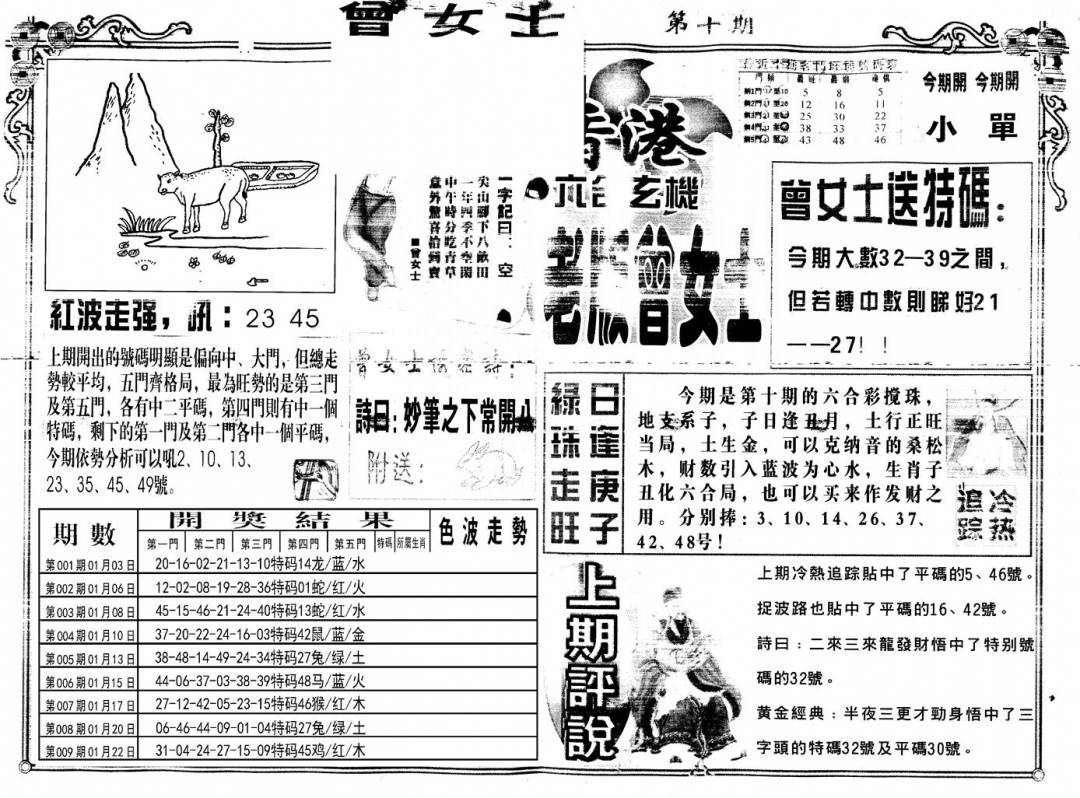 曾女士
第十期
今期開 今期開
小 單
5 8 5
12 16 11
25 30 22
38 33 37
43 48 46
香港
六合玄機
老版曾女士
曾女士送特碼：
今期大數32—39之間，
但若轉中數則睇好21
——27！！
一字記曰：空
尖山腳下八畝田
一年四季不空閑
中午時分吃青草
意外驚喜拾到寶
■曾女士
紅波走强，吼：23 45
上期開出的號碼明顯是偏向中、大門，但總走
勢較平均，五門齊格局，最為旺勢的是第三門
及第五門，各有中二平碼，第四門則有中一個
特碼，剩下的第一門及第二門各中一個平碼，
今期依勢分析可以吼2、10、13、
23、35、45、49號。
詩曰：妙筆之下常開八
附送：
綠珠走旺
日逢庚子
今期是第十期的六合彩搅珠，
地支系子，子日逢丑月，土行正旺
当局，土生金，可以克纳音的桑松
木，财数引入蓝波为心水，生肖子
丑化六合局，也可以买来作发财之
用。分别捧：3、10、14、26、37、
42、48号！
冷热
追踪
期數 開獎結果 色波走勢
第一門 第二門 第三門 第四門 第五門 特碼 所屬生肖
第001期01月03日 20-16-02-21-13-10特码14龙/蓝/水
第002期01月06日 12-02-08-19-28-36特码01蛇/红/火
第003期01月08日 45-15-46-21-24-40特码13蛇/红/水
第004期01月10日 37-20-22-24-16-03特码42鼠/蓝/金
第005期01月13日 38-48-14-49-24-34特码27兔/绿/土
第006期01月15日 44-06-37-03-38-39特码48马/蓝/火
第007期01月17日 27-12-42-05-23-15特码46猴/红/木
第008期01月20日 06-46-44-09-01-04特码27兔/绿/土
第009期01月22日 31-04-24-27-15-09特码45鸡/红/木
上期評說
上期冷熱追踪貼中了平碼的5、46號。
捉波路也貼中了平碼的16、42號。
詩曰：二來三來龍發財悟中了特别號
碼的32號。
黃金經典：半夜三更才勁身悟中了三
字頭的特碼32號及平碼30號。